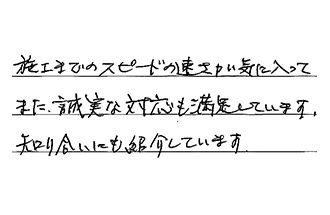 施工までのスピードの速さが気に入って
また、誠実な対応も満足しています。
知り合いにも紹介しています。